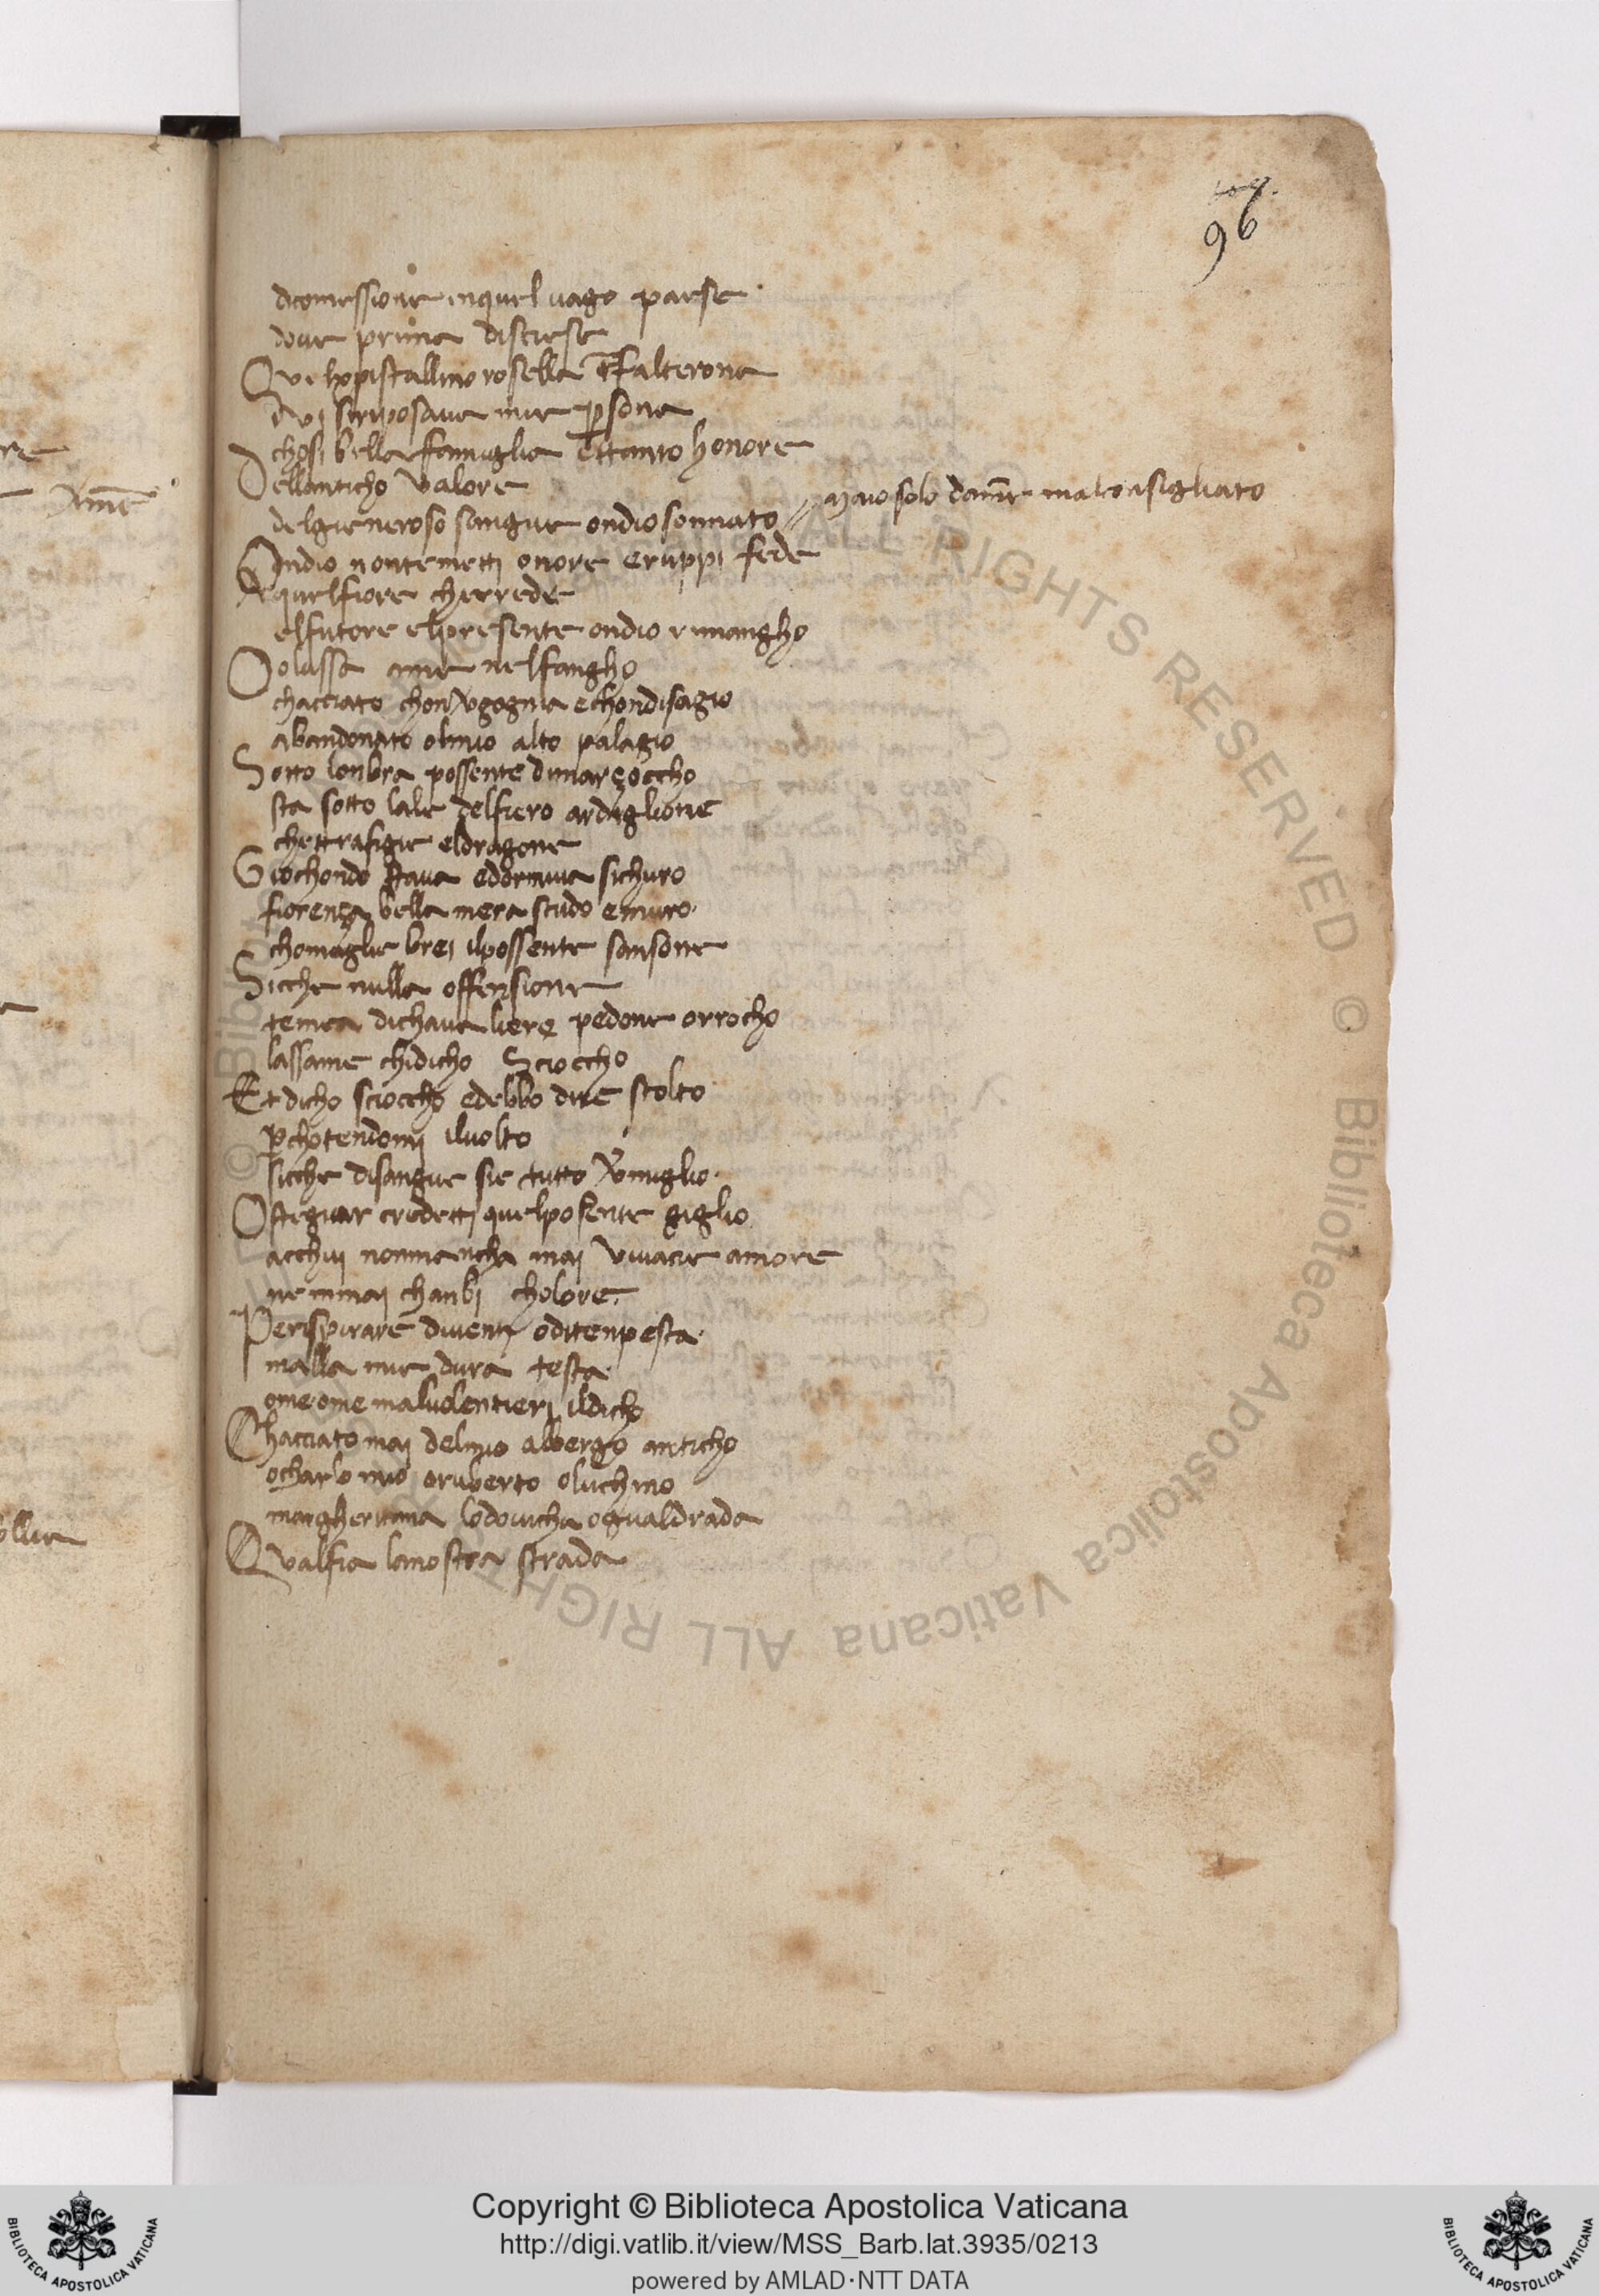 96
dconcessione inquel vago paese
dove prima discese
Qui hopistallino rosella effalterona
Ivi siriposava mie psona
Ichosi bella famiglia ettanto honore
Dellanticho valore
delgieneroso sangue ondio sonnato // Maio solo dame malconsigliato
Ondio nontemetti onore eruppi fede
Aquelfiore cherrede
elfuturo elpresente ondio rimangho
O olasso ame nelfangho
chacciato chonvgogna echondisagio
abandonato olmio alto palagio
Sotto lonbra possente dimarçoccho
sta sotto lale delfiero
chettrafigie eldragone
Giochondo stava edormiva sichuro
fiorença bella mera scudo emuro
chomaglie brei ilpossente sansone
Sicche nulla offensione
temea dichavaliere pedone orrocho
lassame chidicho Scioccho
Et dicho scioccho edebbo dire stolto
pchotendomi ilvolto
sicche disangue sie tutto vmiglio
Ostegniar credetti quelposente giglio
acchui nonmancha mai vivace amore
nemmai chanbi cholore
Perispirare diventi oditenpesta
malla mie dura testa
ome ome malvolentieri ildicho
Chacciato mai delmio albergo anticho
ocharlo mio oruberto oluchino
margheritina lodovicha ogualdrada
Qualfia lanostra strada
Copyright © Biblioteca Apostolica Vaticana
http://digi.vatlib.it/view/MSS_Barb.lat.3935/0213
powered by AMLAD·NTT DATA